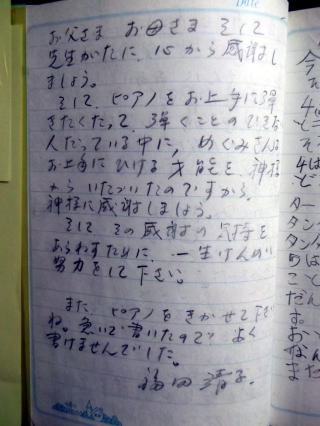 Date
お父さま お母さま そして
先生がたに、心から感謝し
ましょう。
そして、ピアノをお上手に弾
きたくたって、弾くことのできない
人だっている中に、めぐみさんは
お上手にひける才能を、神様
からいただいたのですから、
神様に感謝しましょう。
そして その感謝の気持を
あらわすために、一生けんめい
努力をして下さい。
また、ピアノをきかせて下さい
ね。急いで書いたので よく
書けませんでした。
福田 靖子.
今
そ
4
ど
そ
4は
ど
ター
タン
タンタ
のは
こと
だん
す。
お
なん
また